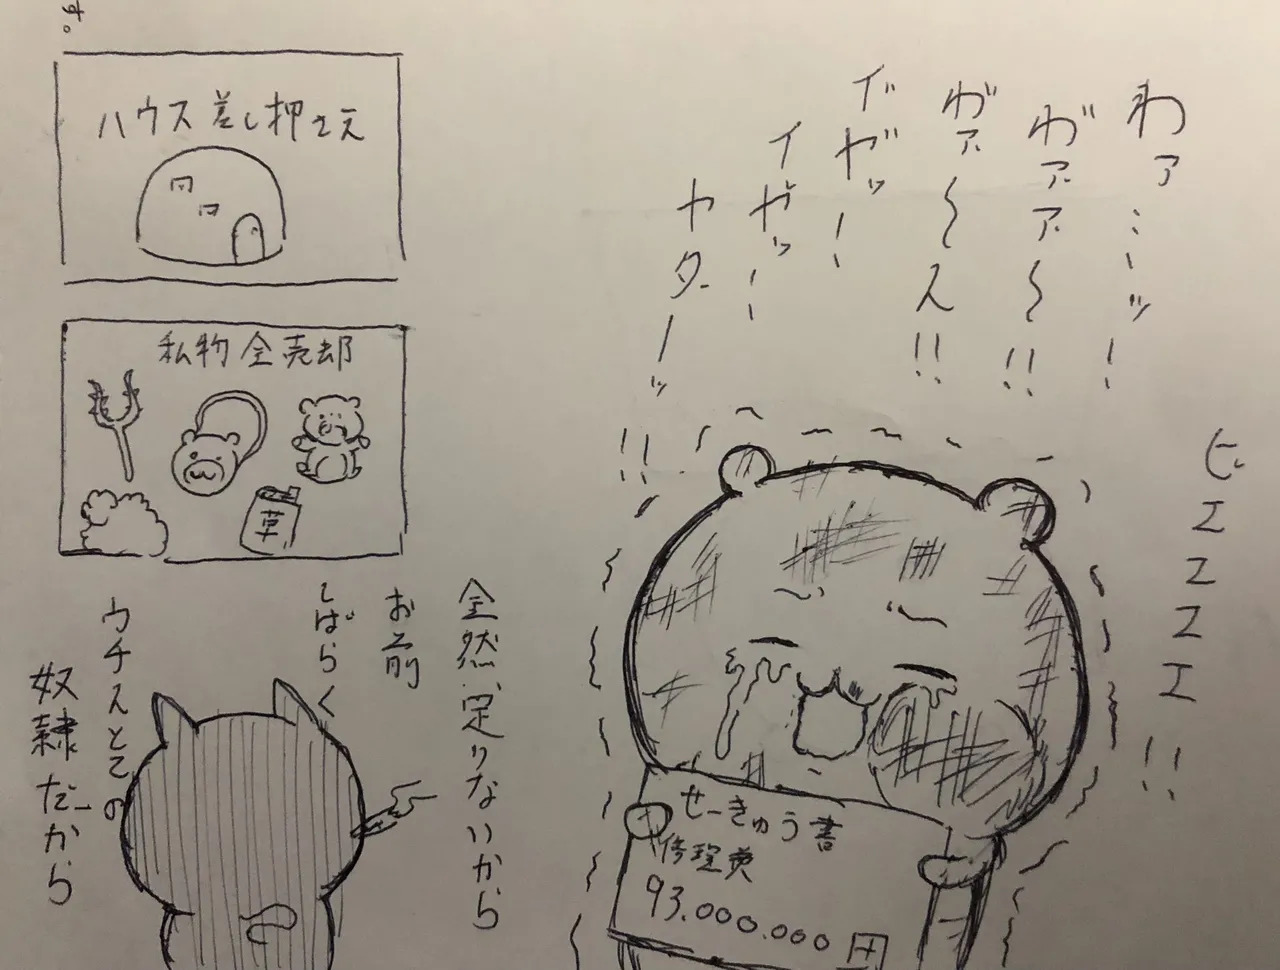 わァ…ーッ！
わ゛ァア〜!!
わ゛ァ〜ス!!
イ゛ヤ゛ッー！
イヤ゛ッー！
ヤダーッ!!
ピエエエエ!!
せーきゅう書
修理費
93.000.000円
す。
ハウス差し押さえ
私物全売却
草
全然、足りないから
お前
しばらく
ウチらとての
奴隷だから